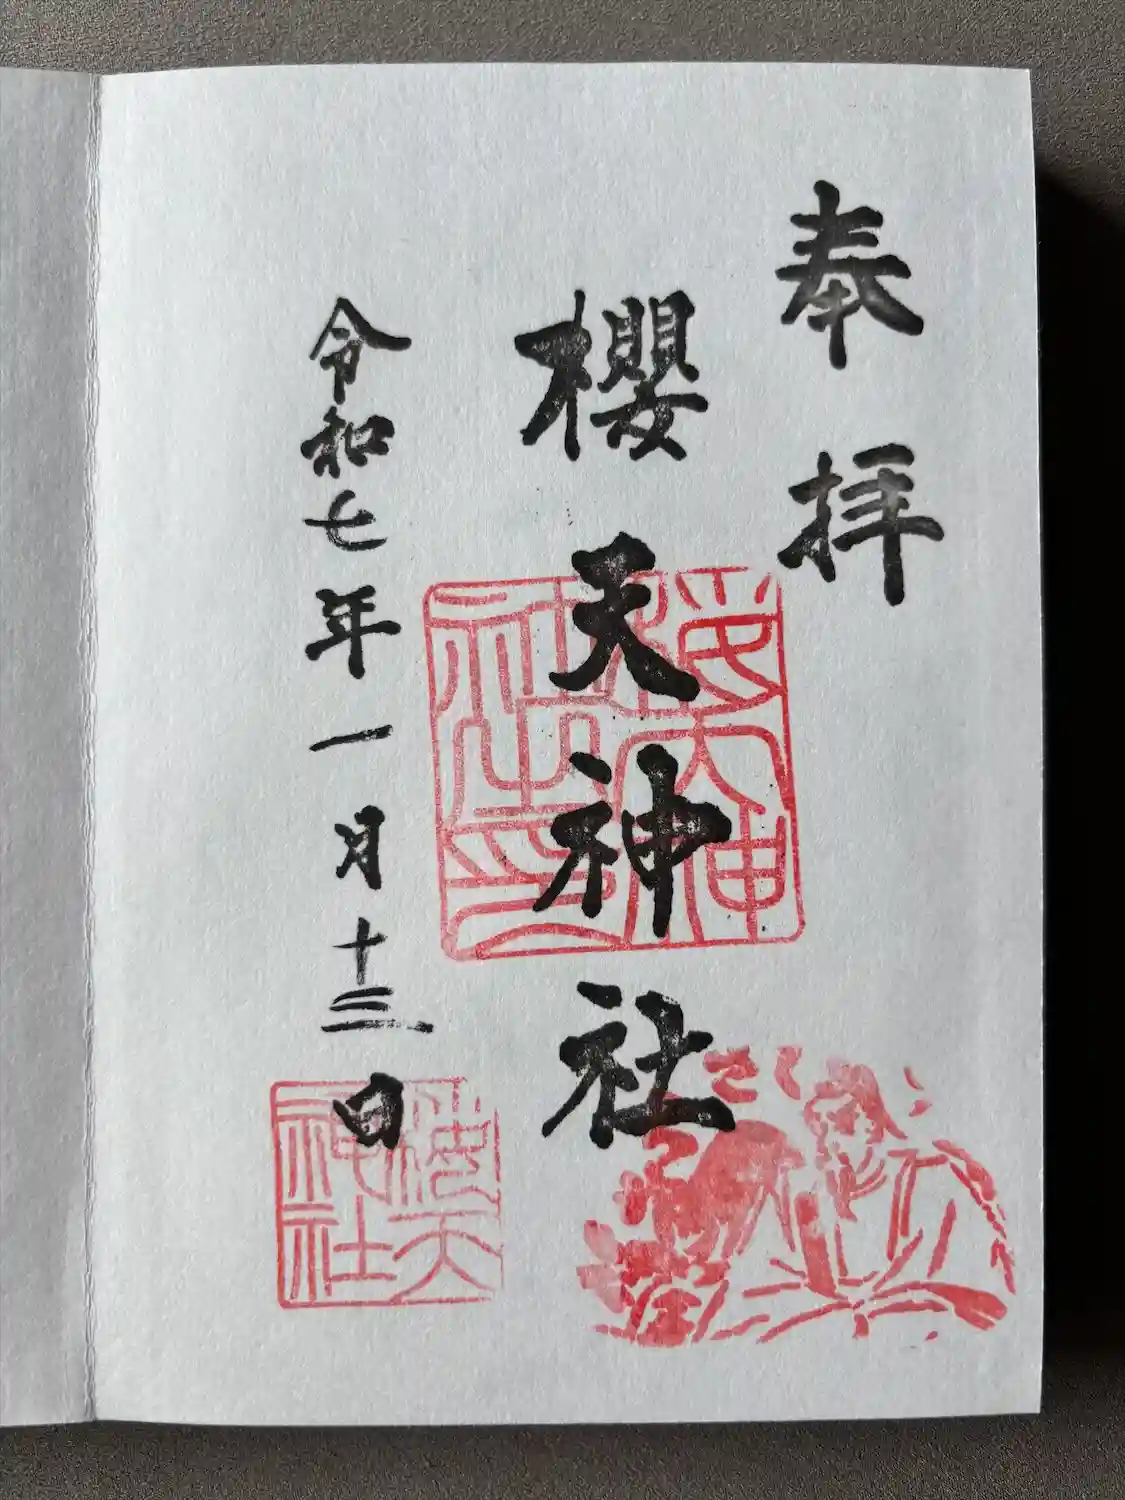 奉拝
櫻天神社
令和七年一月十三日
桜天神
社之印
桜天
神社